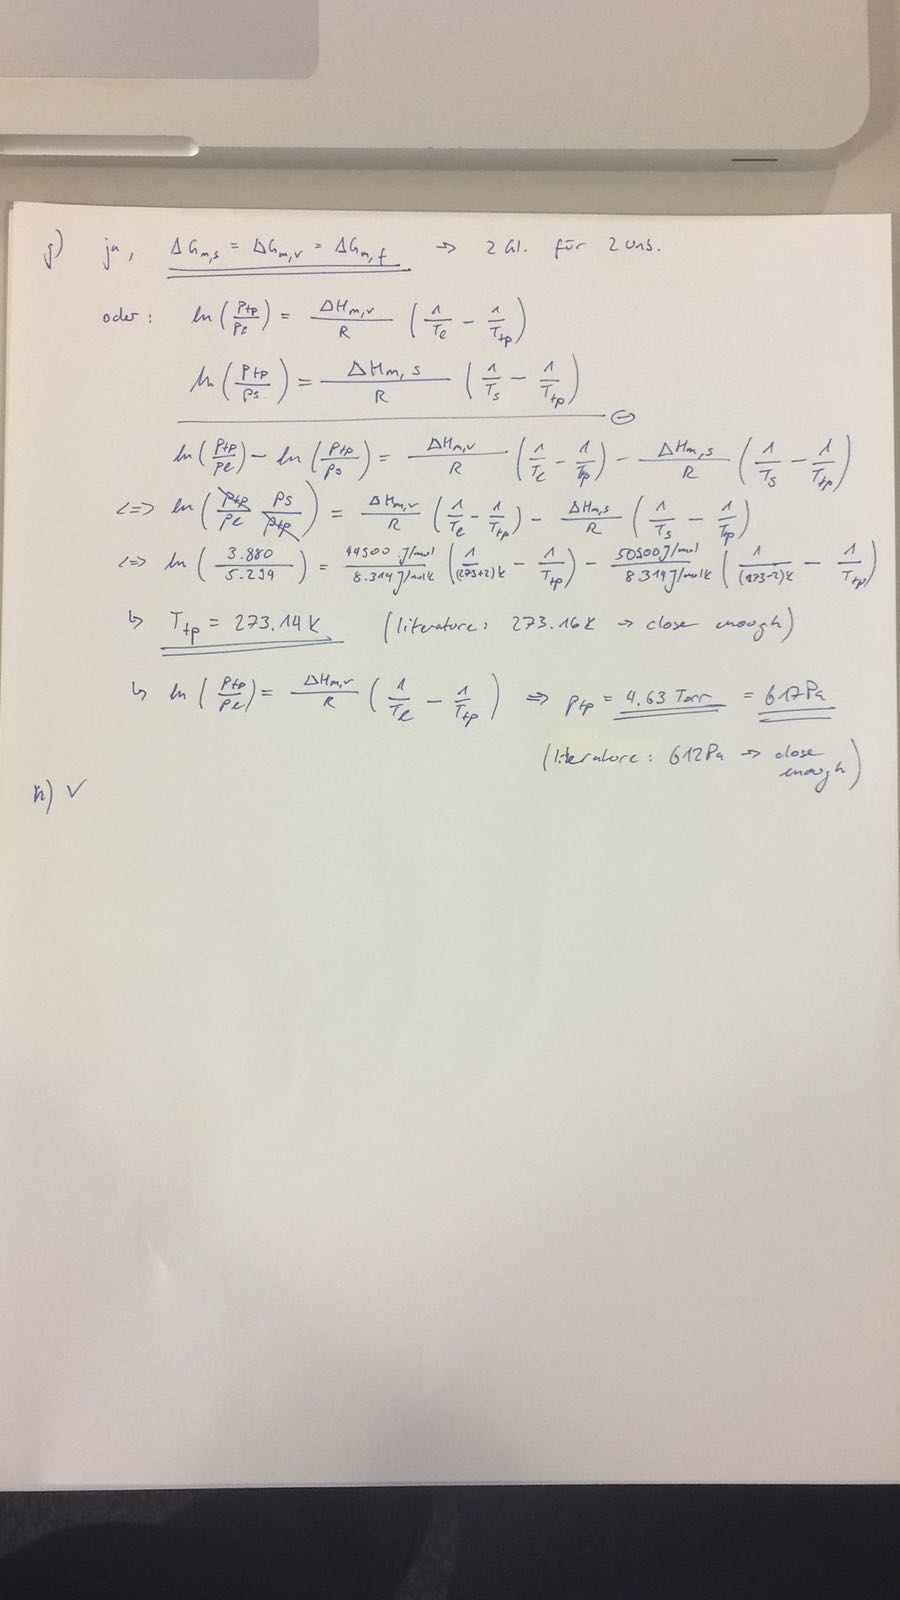 j) ja, ΔG_{m,s} = ΔG_{m,v} = ΔG_{m,f} → 2 Gl. für 2 Unb.
oder: ln(p_{tp}/p_l) = ΔH_{m,v}/R (1/T_l - 1/T_{tp})
ln(p_{tp}/p_s) = ΔH_{m,s}/R (1/T_s - 1/T_{tp})
⊖
ln(p_{tp}/p_l) - ln(p_{tp}/p_s) = ΔH_{m,v}/R (1/T_l - 1/T_{tp}) - ΔH_{m,s}/R (1/T_s - 1/T_{tp})
<=> ln(p_{tp}/p_l p_s/p_{tp}) = ΔH_{m,v}/R (1/T_l - 1/T_{tp}) - ΔH_{m,s}/R (1/T_s - 1/T_{tp})
<=> ln(3.880/5.294) = 44500 J/mol/8.314 J/molK (1/(273+2)K - 1/T_{tp}) - 50500 J/mol/8.314 J/molK (1/(273-2)K - 1/T_{tp})
↳ T_{tp} = 273.14K (literature: 273.16K → close enough)
↳ ln(p_{tp}/p_l) = ΔH_{m,v}/R (1/T_l - 1/T_{tp}) ⇒ p_{tp} = 4.63 Torr = 617Pa
(literature: 612Pa → close
enough)
k) ✓